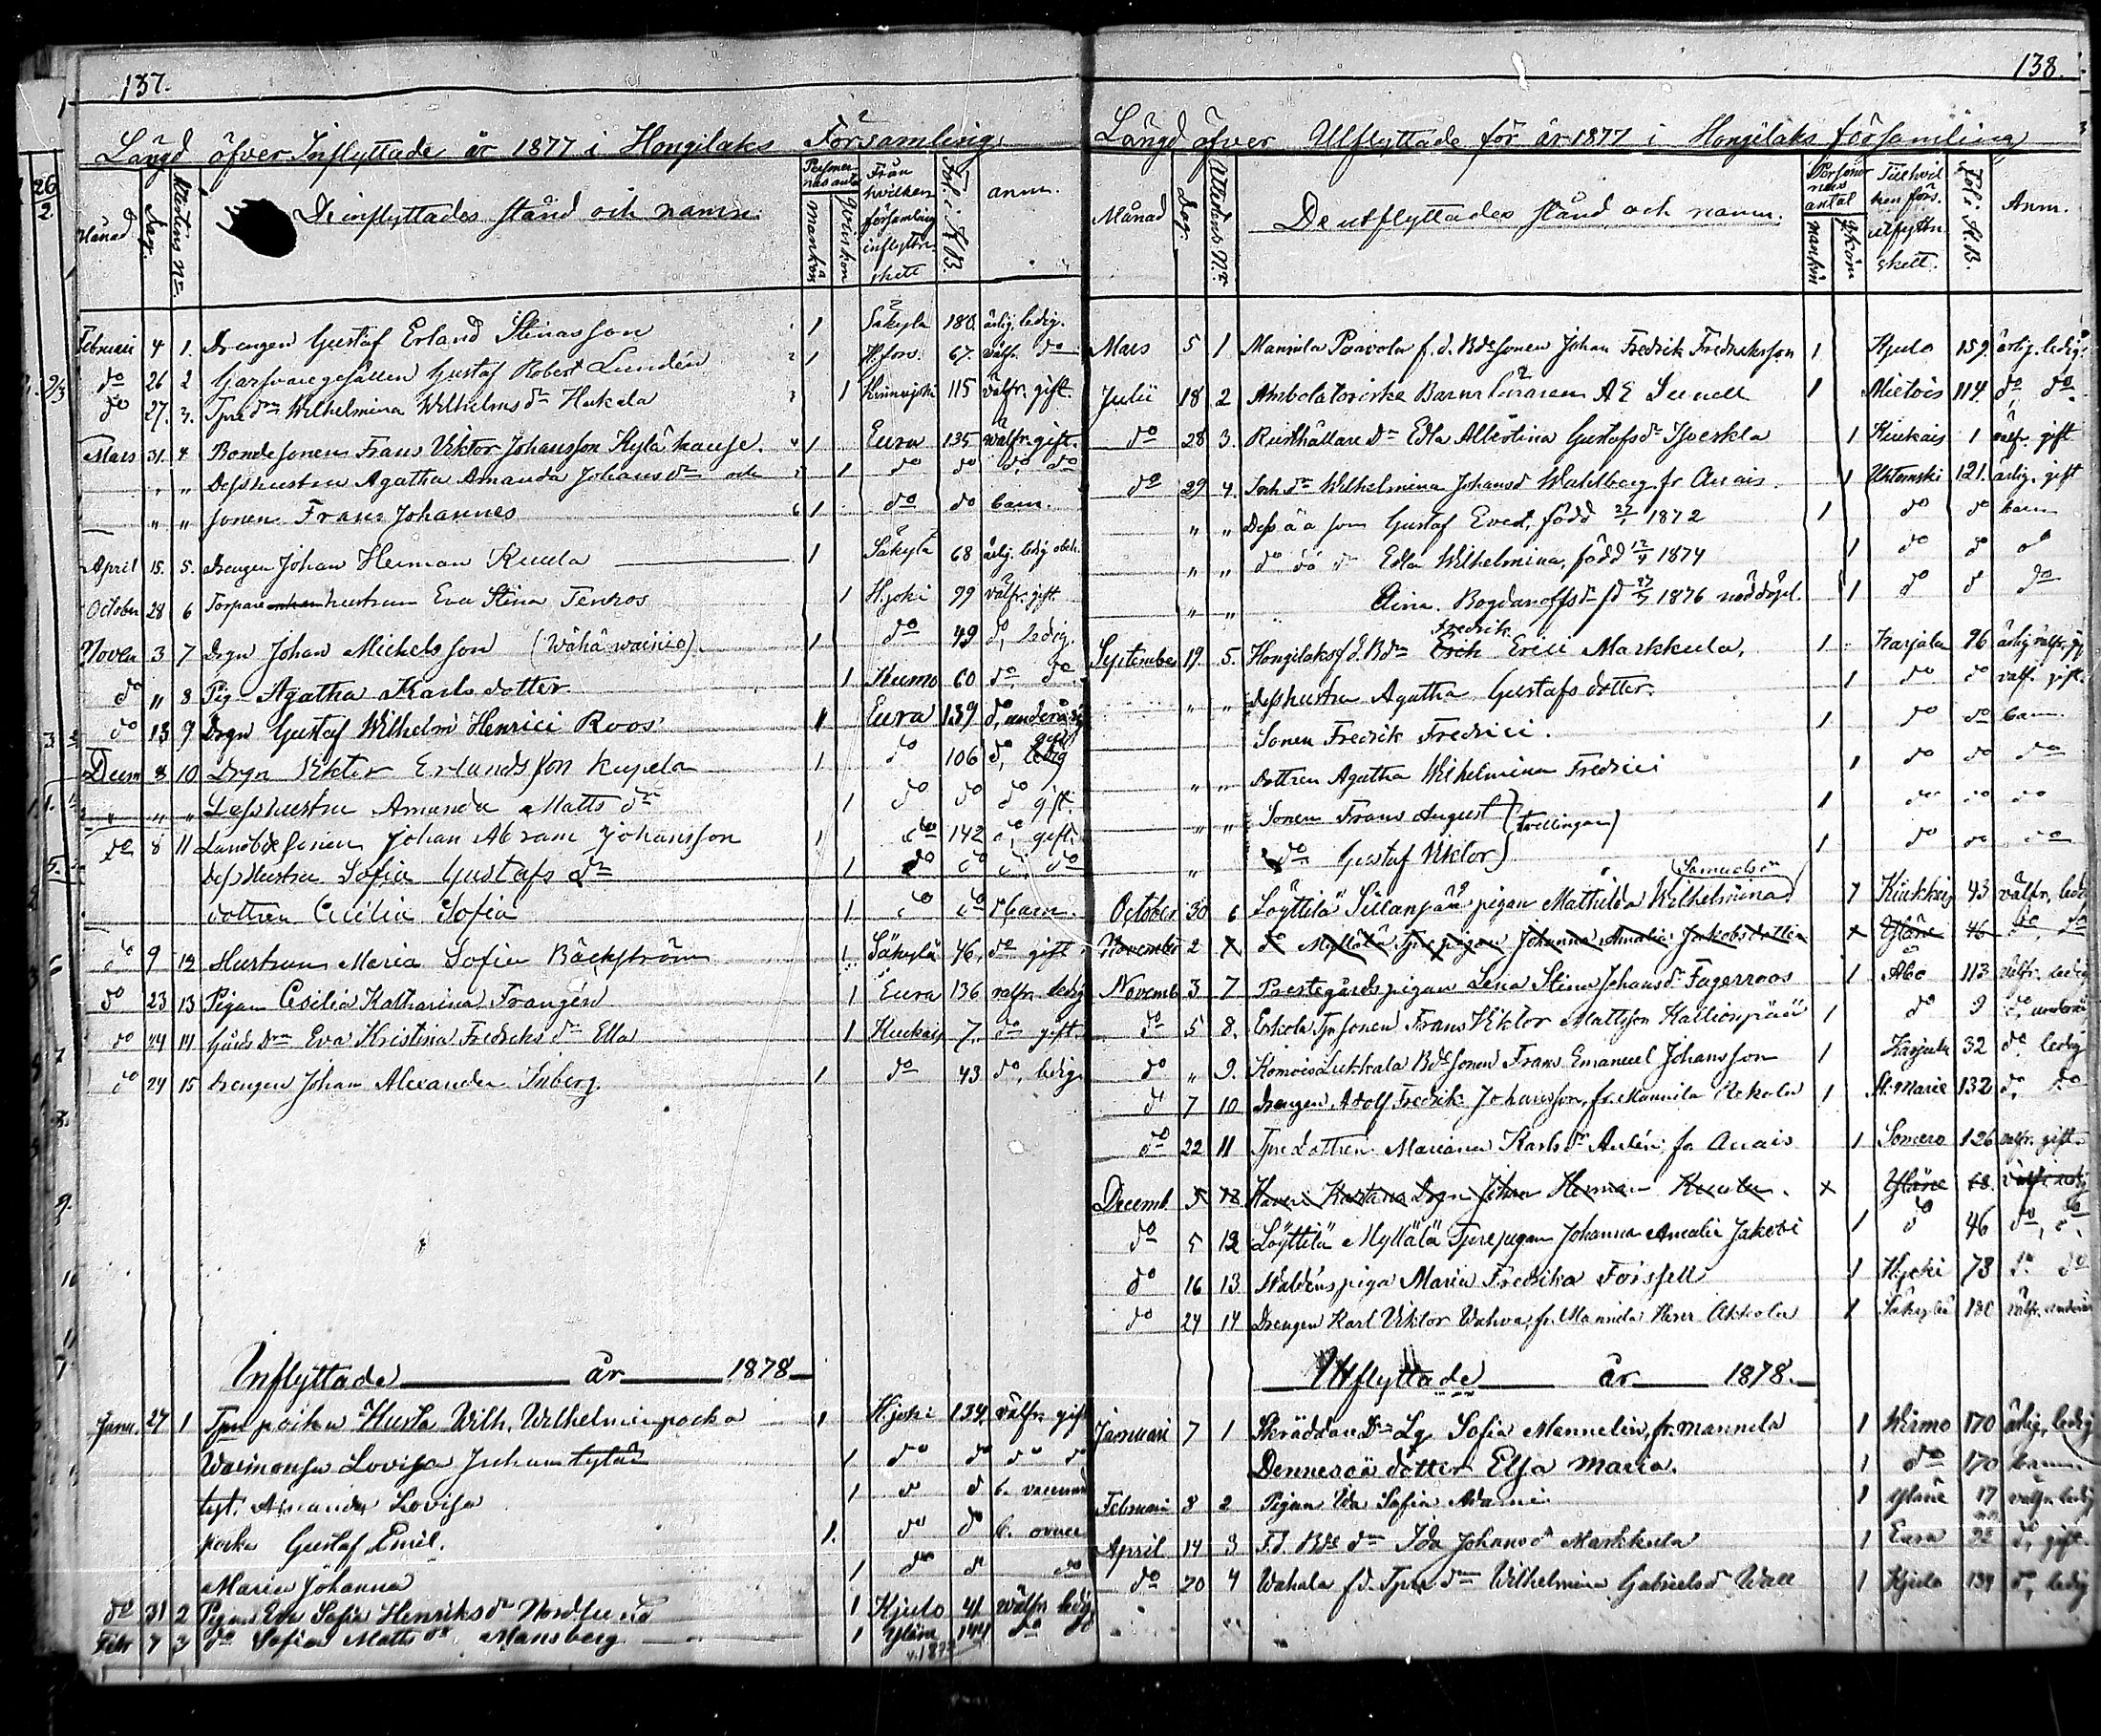 137.
Längd öfver Inflyttade år 1877 i Hongilaks Församling.
Månad Dag. Attestens No. De inflyttades stånd och namn. Personernas antal mankön qvinkön Från hvilken församling inflyttn. skett Fol. i K.B. anm.
Februari 4 1. Drengen Gustaf Erland Stinasson 1 Säkyla 180. ärlig. ledig.
do 26 2 Garfvaregesällen Gustaf Robert Lundén 2 1 H.fors. 67. välfr. do
do 27. 3. Tpredrn Wilhelmina Wilhelmsdr Hukala 1 Kinnujoki 115 välfr. gift.
Mars 31. 4 Bondesonen Frans Viktor Johansson Kylä 4 1 Eura 135 wälfr. gift.
" " Desshustru Agatha Amanda Johansdr och 5 1 do do do do
" " sonen Frans Johannes 6 1 do do barn.
April 15. 5. Drengen Johan Herman Kuula 1 Säkylä 68 ärlig. ledig
October 28 6 Torpare hustrun Eva Stina Tenkos 1 H.joki 99 välfr. gift
Novem 3 7 Drgn Johan Michelsson (Wähä wainio) 1 do 49 do, ledig.
do 11 8 Pig Agatha Karlsdotter 1 Kumo 60 do, do.
do 13 9 Drgn Gustaf Wilhelm Henrici Roos 1 Eura 139 do, underårig
Decem 8 10 Drgn Viktor Erlandsson Kupela 1 do 106 do, ledig gift
" " " Desshustru Amanda Mattsdr 1 do do do gift.
do 8 11 Landbdesonen Johan Abram Johansson 1 do 142 do, gift.
Desshustru Sofia Gustafsdr 1 do do do, do
dottren Cecilia Sofia 1 do do barn.
do 9 12 Hustrun Maria Sofia Bäckström 1 Säkylä 46. do gift
do 23 13 Pigan Cesilia Katharina Frangén 1 Eura 136 välfr. ledig
do 24 14 Gårdsdrn Eva Kristina Fredriksdr Ella 1 Kiukais 7. do gift.
do 24 15 Drengen Johan Alexander Inberg. 1 do 43 do, ledig.
Inflyttade år 1878
Janu. 27 1 Tpr poika Kusta Wilh. Wilhelmin poika 1 H.joki 134. välfr. gift
Waimonsa Lovisa Juhan tytär 1 do do do do
tyt. Amanda Lovisa 1 do d b.
poika Gustaf Emil. 1. do do b.
Maria Johanna 1 do d do
do 31 2 Pigan Eva Sofia Henriksdr Nordlund 1 Kjulo 41 wälfr. ledig
Febr 7 3 do Sofia Mattsdr Mansberg 1 Yläne 144 do do
v. 1872
138.
Längd öfver Utflyttade för år 1877 i Hongilaks församling
Månad Dag. Attestens No. De utflyttades stånd och namn. Personernas antal mankön qvkön Till hvilken förs. utflyttn. skett. Fol. i K.B. Anm.
Mars 5 1 Mannila Paavola f.d. Bdesonen Johan Fredrik Fredriksson 1 Kjulo 159. ärlig. ledig.
Julii 18 2 Ambolatoriske Barnaläraren A E Lunell 1 Mietois 114. do, do
do 28 3. Rusthållare Dr Edla Albertina Gustafsdr 1 Kiukais 1 välfr. gift
do 29 4 Wilhelmina Johansd Wahlberg fr Auais 1 121. ärlig. gift
" " Dess äa son Gustaf Evert, född 27/1 1872 1 do do barn
" " do öä dr Edla Wilhelmina, född 12/9 1874 1 do do do
" " Aina Bogdanoffsdr fd 27/7 1876 nöddöpt. 1 do d do
September 19. 5. Hongilaks f.d. Bdn Erich Fredrik Erici Markkula, 1 Karjala 96 ärlig välfr. gift
" " Desshustru Agatha Gustafsdotter. 1 do do välf. gift.
Sonen Fredrik Fredrici. 1 do do barn.
" " Dottren Agatha Wilhelmina Fredrici 1 do do do
" " Sonen Frans August (tvillingar) 1 do do do
" do Gustaf Viktor) 1 do do do
October 30 6 Löyttilä Sillanpää pigan Mathilda Wilhelmina (Samuelsdr 1 Kiukais 43 välfr, ledig
Novemb 2 7 do Myllälä Tpre pigan Johanna Amalia Jakobsdotter x Yläne 46 do, do
Novemb 3 7 Prestgårdspigan Lena Stina Johansdr Fagerroos 1 Åbo 113 välfr. ledig
do 5 8. Erkola Tprsonen Frans Viktor Mattsson Kallionpää 1 do 9 do, underår
do " 9. Komois Lukkala Bdesonen Frans Emanuel Johansson 1 Karjala 32 do. ledig
do 7 10 Drengen Adolf Fredrik Johansson, fr. Mannila Rekola 1 St. Marie 132 do, do
do 22 11 Tpredottren Mariana Karlsdr Antén, fr Auais 1 Somero 126 välfr. gift.
Decemb. 5 12 Drgn Johan Herman Kuula. x Yläne 68. välfr ledig
do 5 12 Löyttilä Myllälä Tprepigan Johanna Amalia Jakobi 1 do 46 do, do
do 16 13 Waldéns piga Maria Fredrika Forssell 1 H.joki 73 do do
do 24 14 Drengen Karl Viktor Vahva, fr. Mannila Akkola 1 Säkylä 180 välfr. underår
Utflyttade år 1878.
Januari 7 1 Skräddare Dr Lg Sofia Mannelin, fr. mannila 1 Wirmo 170 ärlig, ledig
Dennes oä dotter Elsa Maria. 1 do 170 barn.
Februari 8 2 Pigan Ida Sofia Adami 1 Yläne 17 välfr. ledig
April 14 3 F.d. Bde drn Ida Johansdr Markkula 1 Eura do, gift.
do 20 4 Wahala f.d. Tpre drn Wilhelmina Gabrielsdr Wall 1 Kjulo 139 do, ledig